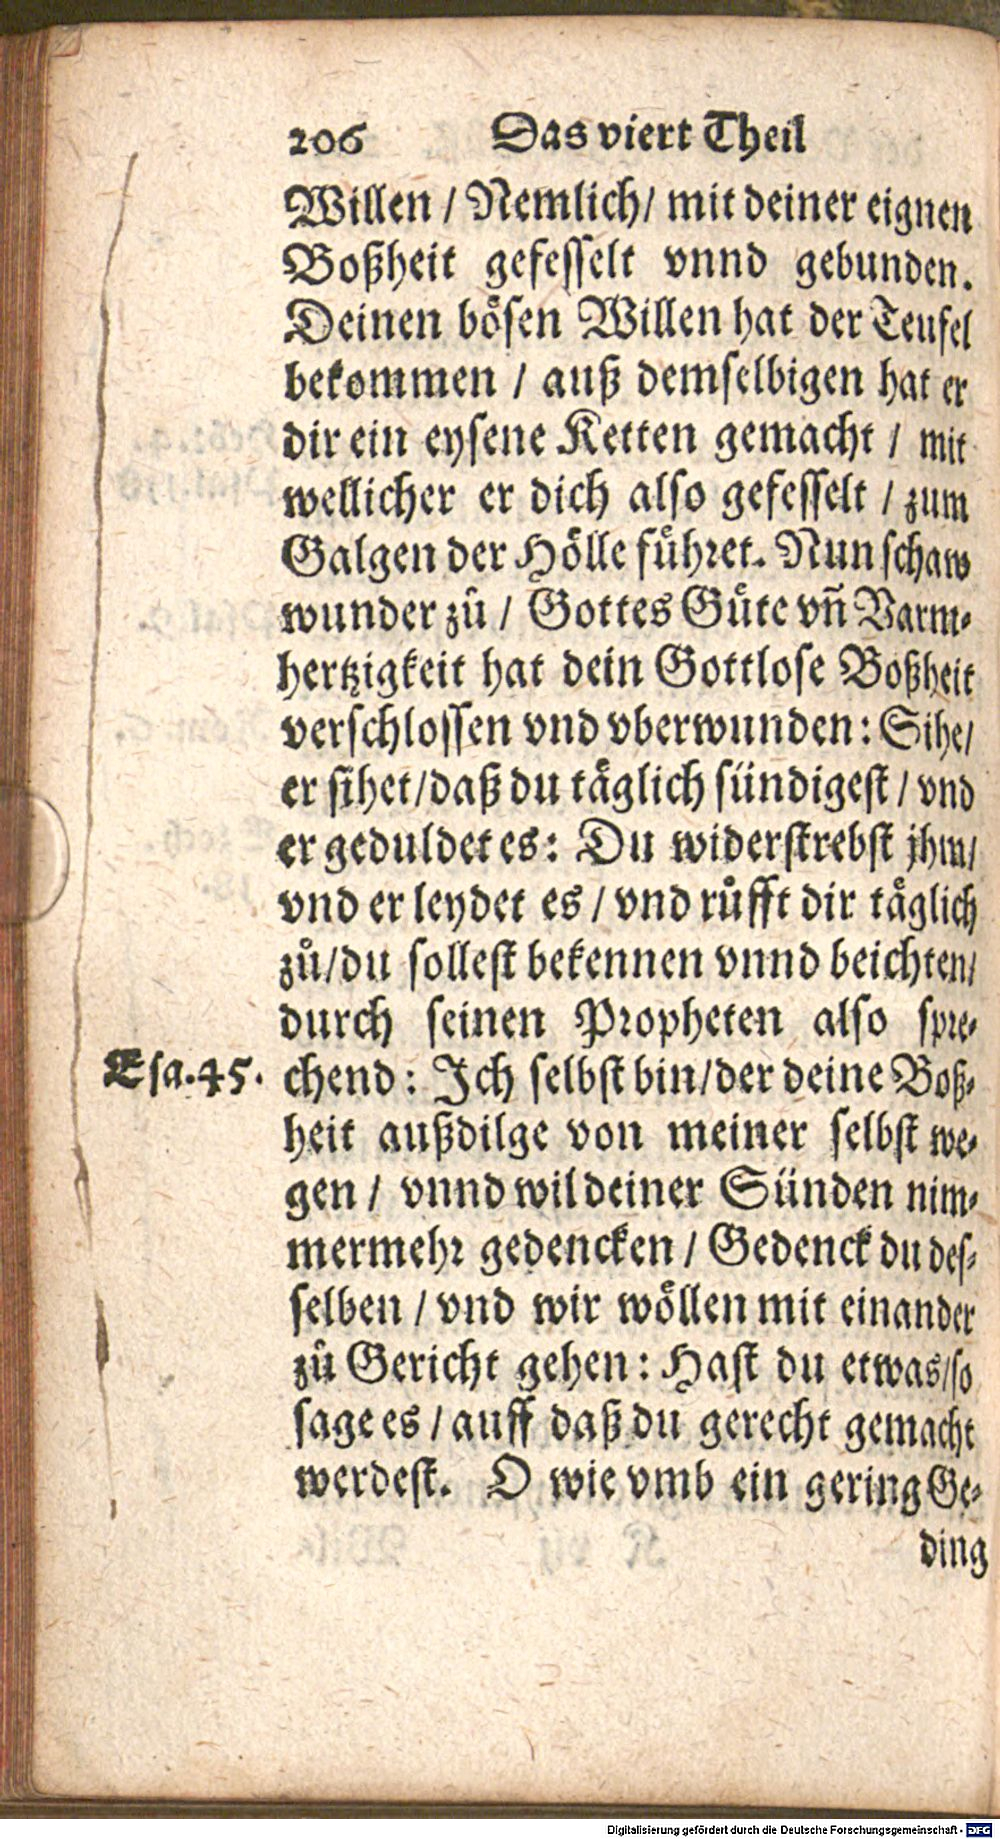 206 Das viert Theil
Willen / Nemlich / mit deiner eignen
Boßheit gefesselt vnnd gebunden.
Deinen bösen Willen hat der Teufel
bekommen / auß demselbigen hat er
dir ein eysene Ketten gemacht / mit
wellicher er dich also gefesselt / zum
Galgen der Hölle führet. Nun schaw
wunder zů / Gottes Güte vñ Barm-
hertzigkeit hat dein Gottlose Boßheit
verschlossen vnd vberwunden: Sihe/
er sihet/daß du täglich sündigest / vnd
er geduldet es: Du widerstrebst jhm/
vnd er leydet es / vnd růfft dir täglich
zů/du sollest bekennen vnnd beichten/
durch seinen Propheten also spre-
Esa.45. chend: Ich selbst bin/der deine Boß-
heit außdilge von meiner selbst we-
gen / vnnd wil deiner Sünden nim-
mermehr gedencken / Gedenck du des-
selben / vnd wir wöllen mit einander
zů Gericht gehen: Hast du etwas/so
sage es / auff daß du gerecht gemacht
werdest. O wie vmb ein gering Ge-
ding
Digitalisierung gefördert durch die Deutsche Forschungsgemeinschaft - DFG